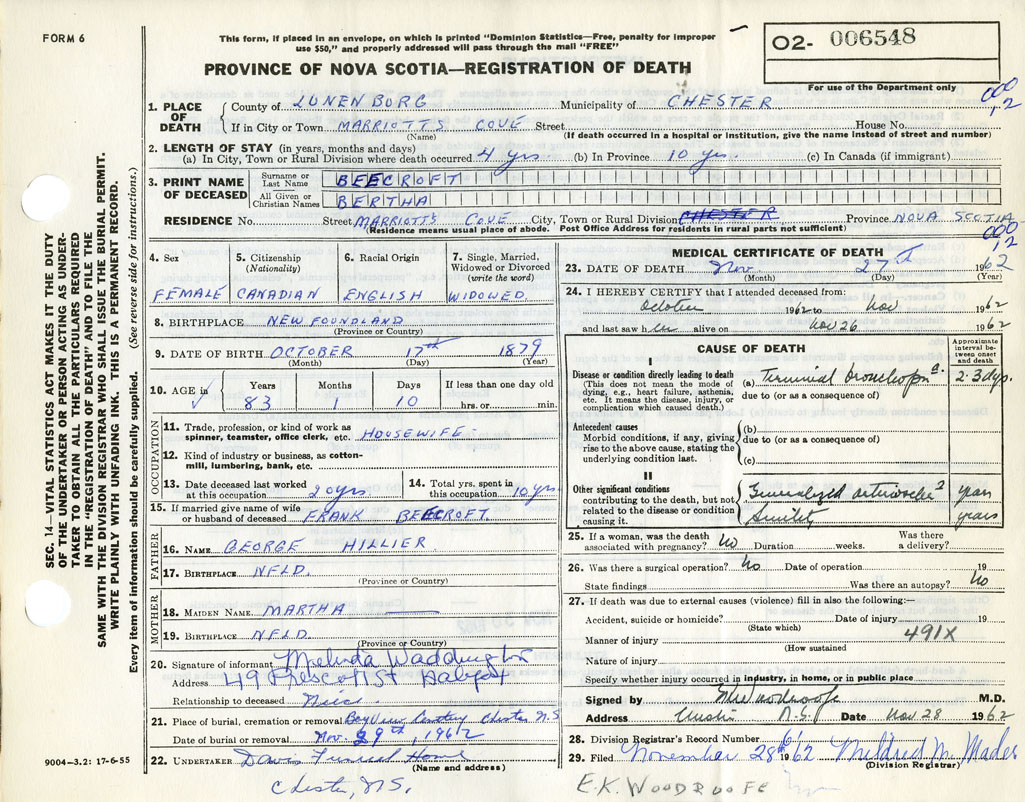 FORM 6
This form, if placed in an envelope, on which is printed "Dominion Statistics—Free, penalty for improper
use $50," and properly addressed will pass through the mail "FREE"
O2- 006548
For use of the Department only
PROVINCE OF NOVA SCOTIA—REGISTRATION OF DEATH
000
1,2
1. PLACE OF DEATH County of LUNENBORG Municipality of CHESTER
If in City or Town MARRIOTTS COVE Street House No.
(Name) (If death occurred in a hospital or institution, give the name instead of street and number)
2. LENGTH OF STAY (in years, months and days)
(a) In City, Town or Rural Division where death occurred 4 yrs. (b) In Province 10 yrs. (c) In Canada (if immigrant)
3. PRINT NAME OF DECEASED
Surname or Last Name BEECROFT
All Given or Christian Names BERTHA
RESIDENCE No. Street MARRIOTTS COVE City, Town or Rural Division CHESTER Province NOVA SCOTIA
(Residence means usual place of abode. Post Office Address for residents in rural parts not sufficient)
000
1,2
SEC. 14—VITAL STATISTICS ACT MAKES IT THE DUTY
OF THE UNDERTAKER OR PERSON ACTING AS UNDER-
TAKER TO OBTAIN ALL THE PARTICULARS REQUIRED
IN THE "REGISTRATION OF DEATH" AND TO FILE THE
SAME WITH THE DIVISION REGISTRAR WHO SHALL ISSUE THE BURIAL PERMIT.
WRITE PLAINLY WITH UNFADING INK. THIS IS A PERMANENT RECORD.
Every item of information should be carefully supplied. (See reverse side for instructions.)
4. Sex
FEMALE
5. Citizenship
(Nationality)
CANADIAN
6. Racial Origin
ENGLISH
7. Single, Married,
Widowed or Divorced
(write the word)
WIDOWED
8. BIRTHPLACE NEW FOUNDLAND
(Province or Country)
9. DATE OF BIRTH OCTOBER 17th 1879
(Month) (Day) (Year)
10. AGE in Years Months Days If less than one day old
83 1 10 hrs. or min.
OCCUPATION
11. Trade, profession, or kind of work as
spinner, teamster, office clerk, etc. HOUSEWIFE
12. Kind of industry or business, as cotton-
mill, lumbering, bank, etc.
13. Date deceased last worked
at this occupation 20 yrs
14. Total yrs. spent in
this occupation 10 yrs
15. If married give name of wife
or husband of deceased FRANK BEECROFT.
FATHER
16. NAME GEORGE HILLIER
17. BIRTHPLACE NFLD.
(Province or Country)
MOTHER
18. MAIDEN NAME MARTHA
19. BIRTHPLACE NFLD.
(Province or Country)
20. Signature of informant Melinda Waddington
Address 49 Prescott St Halifax
Relationship to deceased Niece
21. Place of burial, cremation or removal Bay View Cemetery Chester N.S
Date of burial or removal Nov. 29th, 1962
22. UNDERTAKER Davis Funeral Home
(Name and address)
Chester, N.S.
9004—3.2: 17-6-55
MEDICAL CERTIFICATE OF DEATH
23. DATE OF DEATH Nov. 27th 1962
(Month) (Day) (Year)
24. I HEREBY CERTIFY that I attended deceased from:
October 1962 to Nov 1962
and last saw her alive on Nov 26 1962
CAUSE OF DEATH
Approximate interval between onset and death
I
Disease or condition directly leading to death
(This does not mean the mode of
dying, e.g., heart failure, asthenia,
etc. It means the disease, injury, or
complication which caused death.)
(a) Terminal bronchopn a. 2-3 dys.
due to (or as a consequence of)
Antecedent causes
Morbid conditions, if any, giving
rise to the above cause, stating the
underlying condition last.
(b)
due to (or as a consequence of)
(c)
II
Other significant conditions
contributing to the death, but not
related to the disease or condition
causing it.
Generalized years
Senility years
25. If a woman, was the death
associated with pregnancy? No Duration weeks. Was there
a delivery?
26. Was there a surgical operation? No Date of operation 19
State findings Was there an autopsy? No
27. If death was due to external causes (violence) fill in also the following:—
Accident, suicide or homicide? Date of injury 19
(State which)
Manner of injury 491X
(How sustained
Nature of injury
Specify whether injury occurred in industry, in home, or in public place
Signed by EKWoodroofe M.D.
Address Chester N.S. Date Nov 28 1962
28. Division Registrar's Record Number 61
29. Filed November 28th 1962 Mildred M. Mader
(Division Registrar)
E.K. WOODROOFE